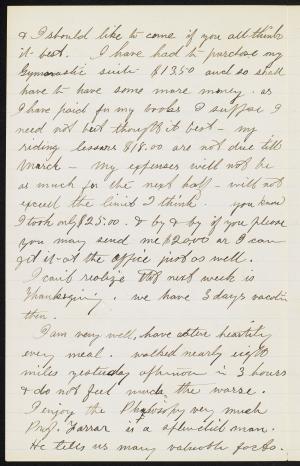 & I should like to come if you all think
it best. I have had to purchase my
Gymnastic suit $13.50 and so shall
have to have some more money. as
I have paid for my books I suppose I
need not but thought it best - my
riding lessons $18.00 are not due till
March - My expenses will not be
as much for the next half - will not
exceed the limit I think. you know
I took only $25.00. & by & by if you please
you may send me $20.00 or I can
get it at the office just as well.
I can't realize that next week is
Thanksgiving. we have 3 days vacation
then.
I am very well, have eaten heartily
every meal. walked nearly eight
miles yesterday afternoon in 3 hours
& do not feel much the worse.
I enjoy the Philosophy very much
Prof. Farrar is a splendid man.
He tells us many valuable facts.